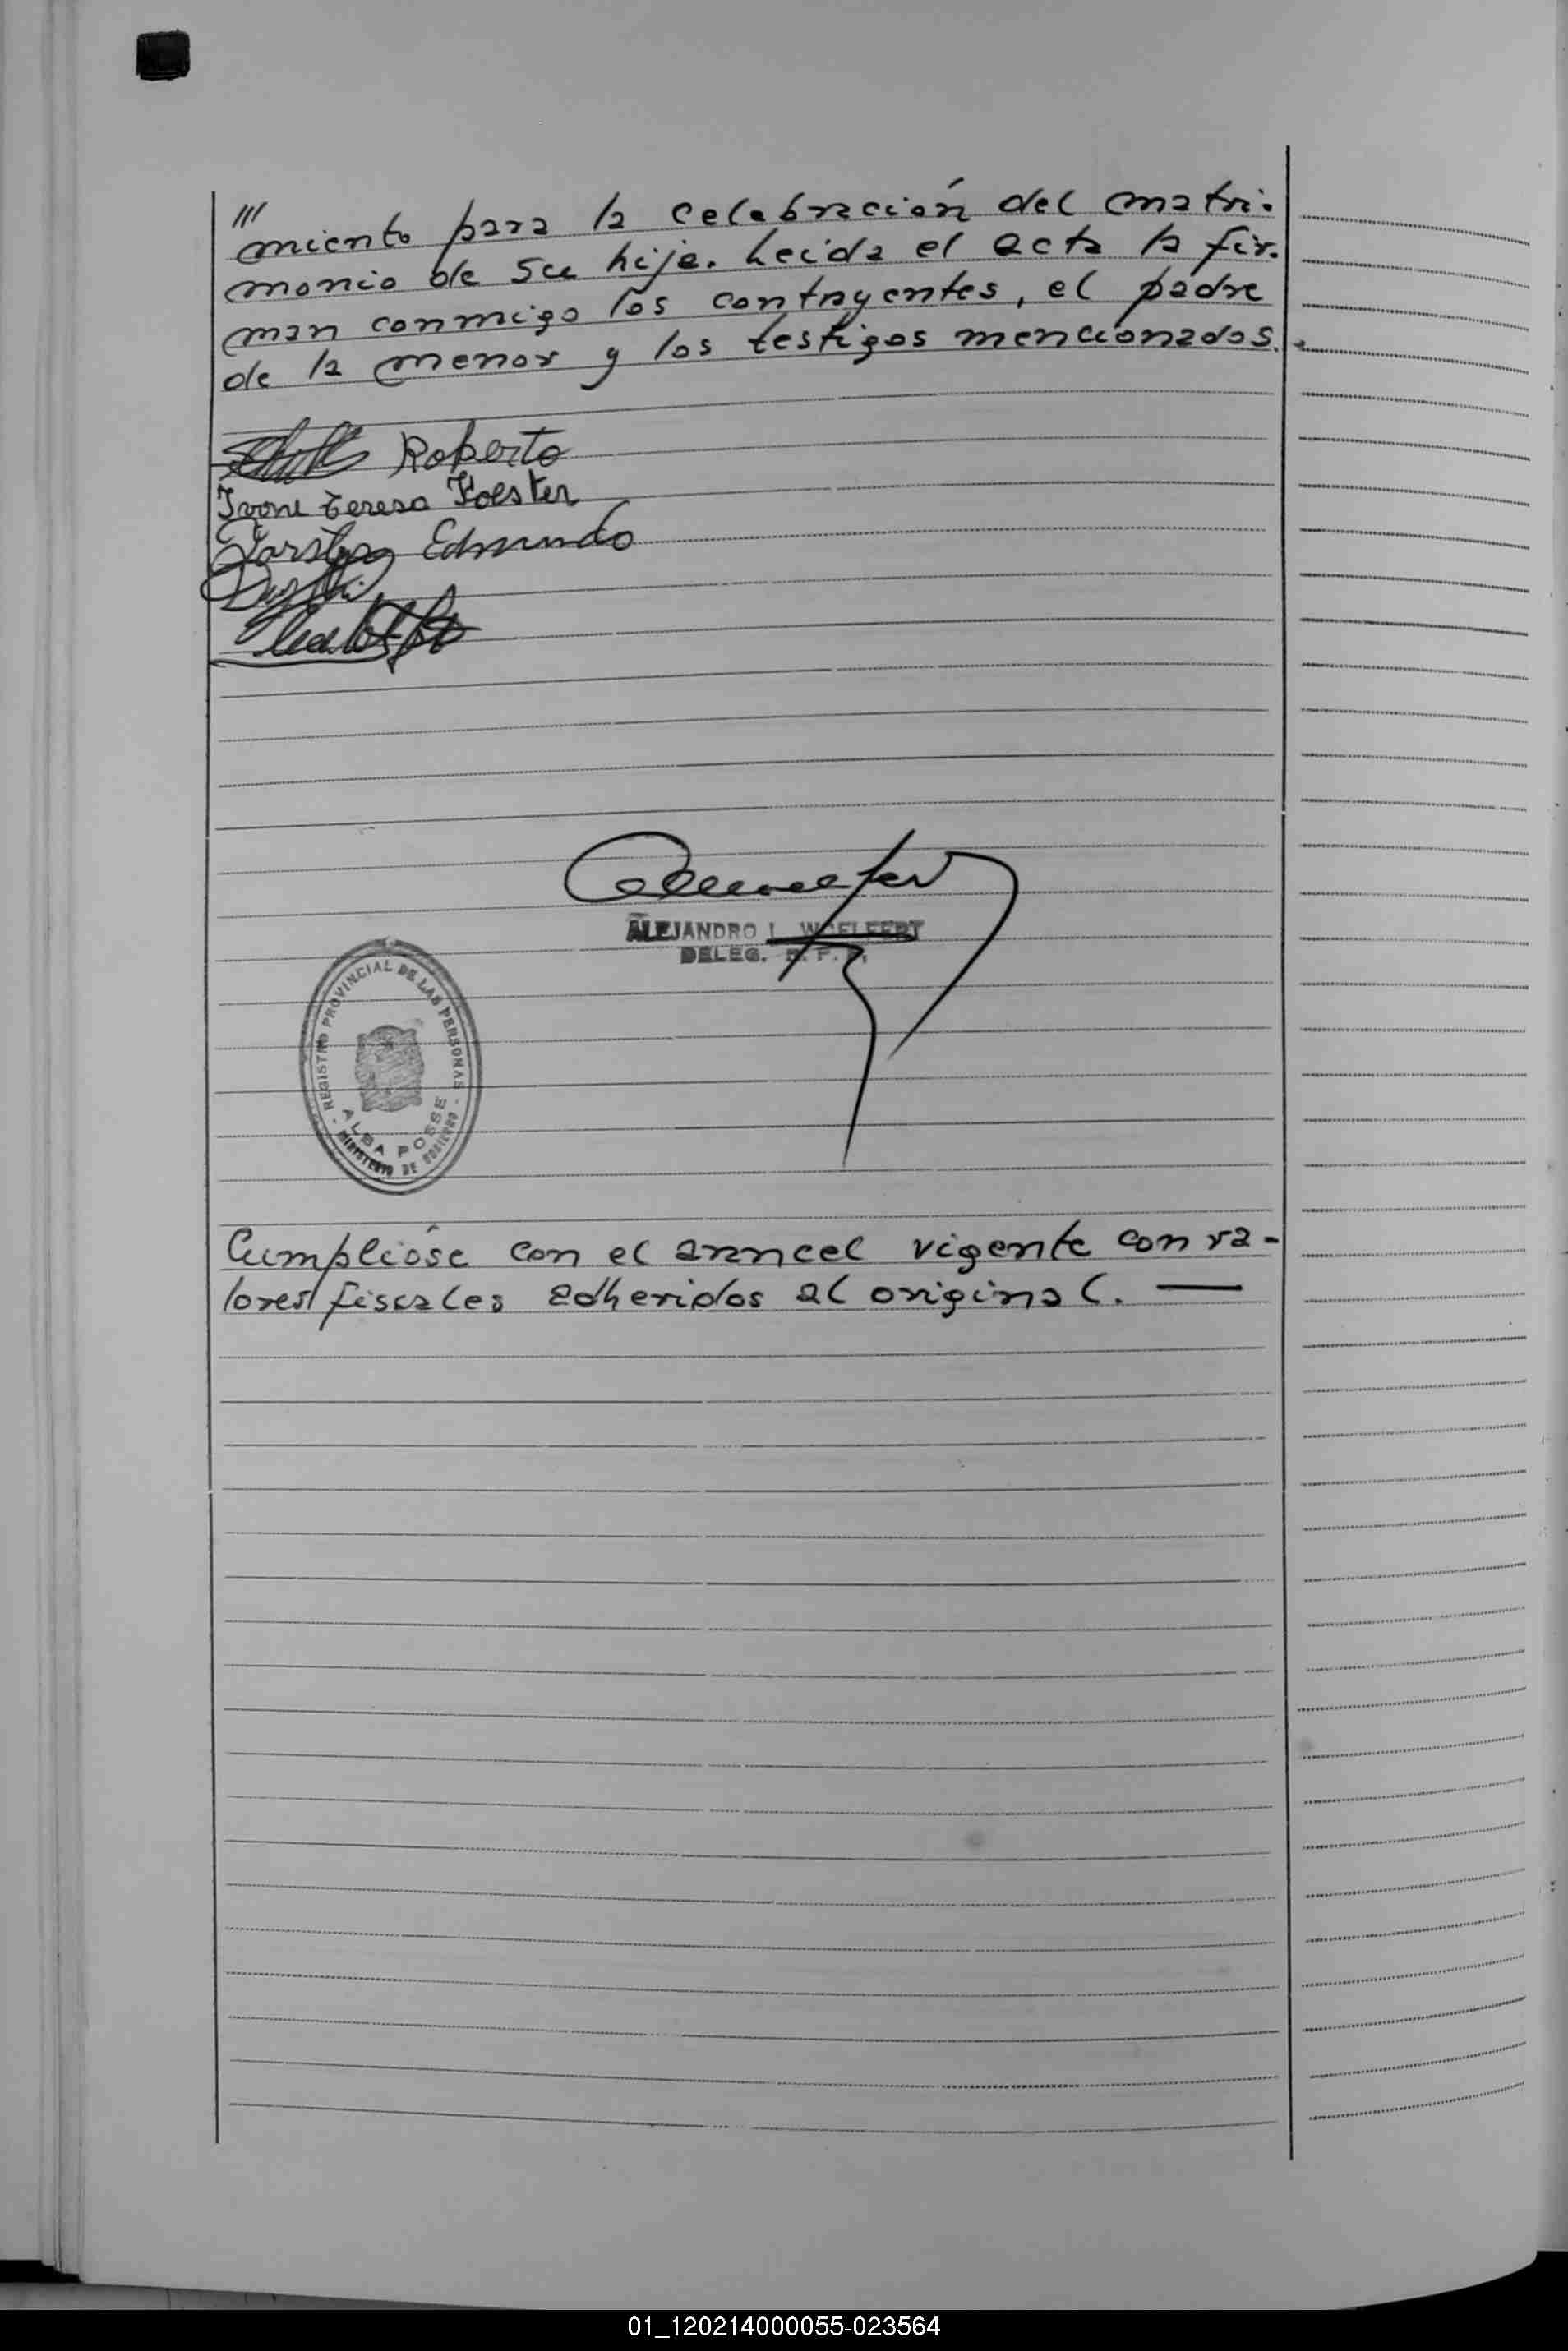 ///
miento para la celebración del matri-
monio de su hija. Leída el acta la fir-
man conmigo los contrayentes, el padre
de la menor y los testigos mencionados.
Roberto
Ivone Teresa Koester
Edmundo
ALEJANDRO L. WOELFERT
DELEG. R. P. P.
REGISTRO PROVINCIAL DE LAS PERSONAS
ALBA POSSE
MINISTERIO DE GOBIERNO
Cumplióse con el arancel vigente con va-
lores fiscales adheridos al original.
01_120214000055-023564